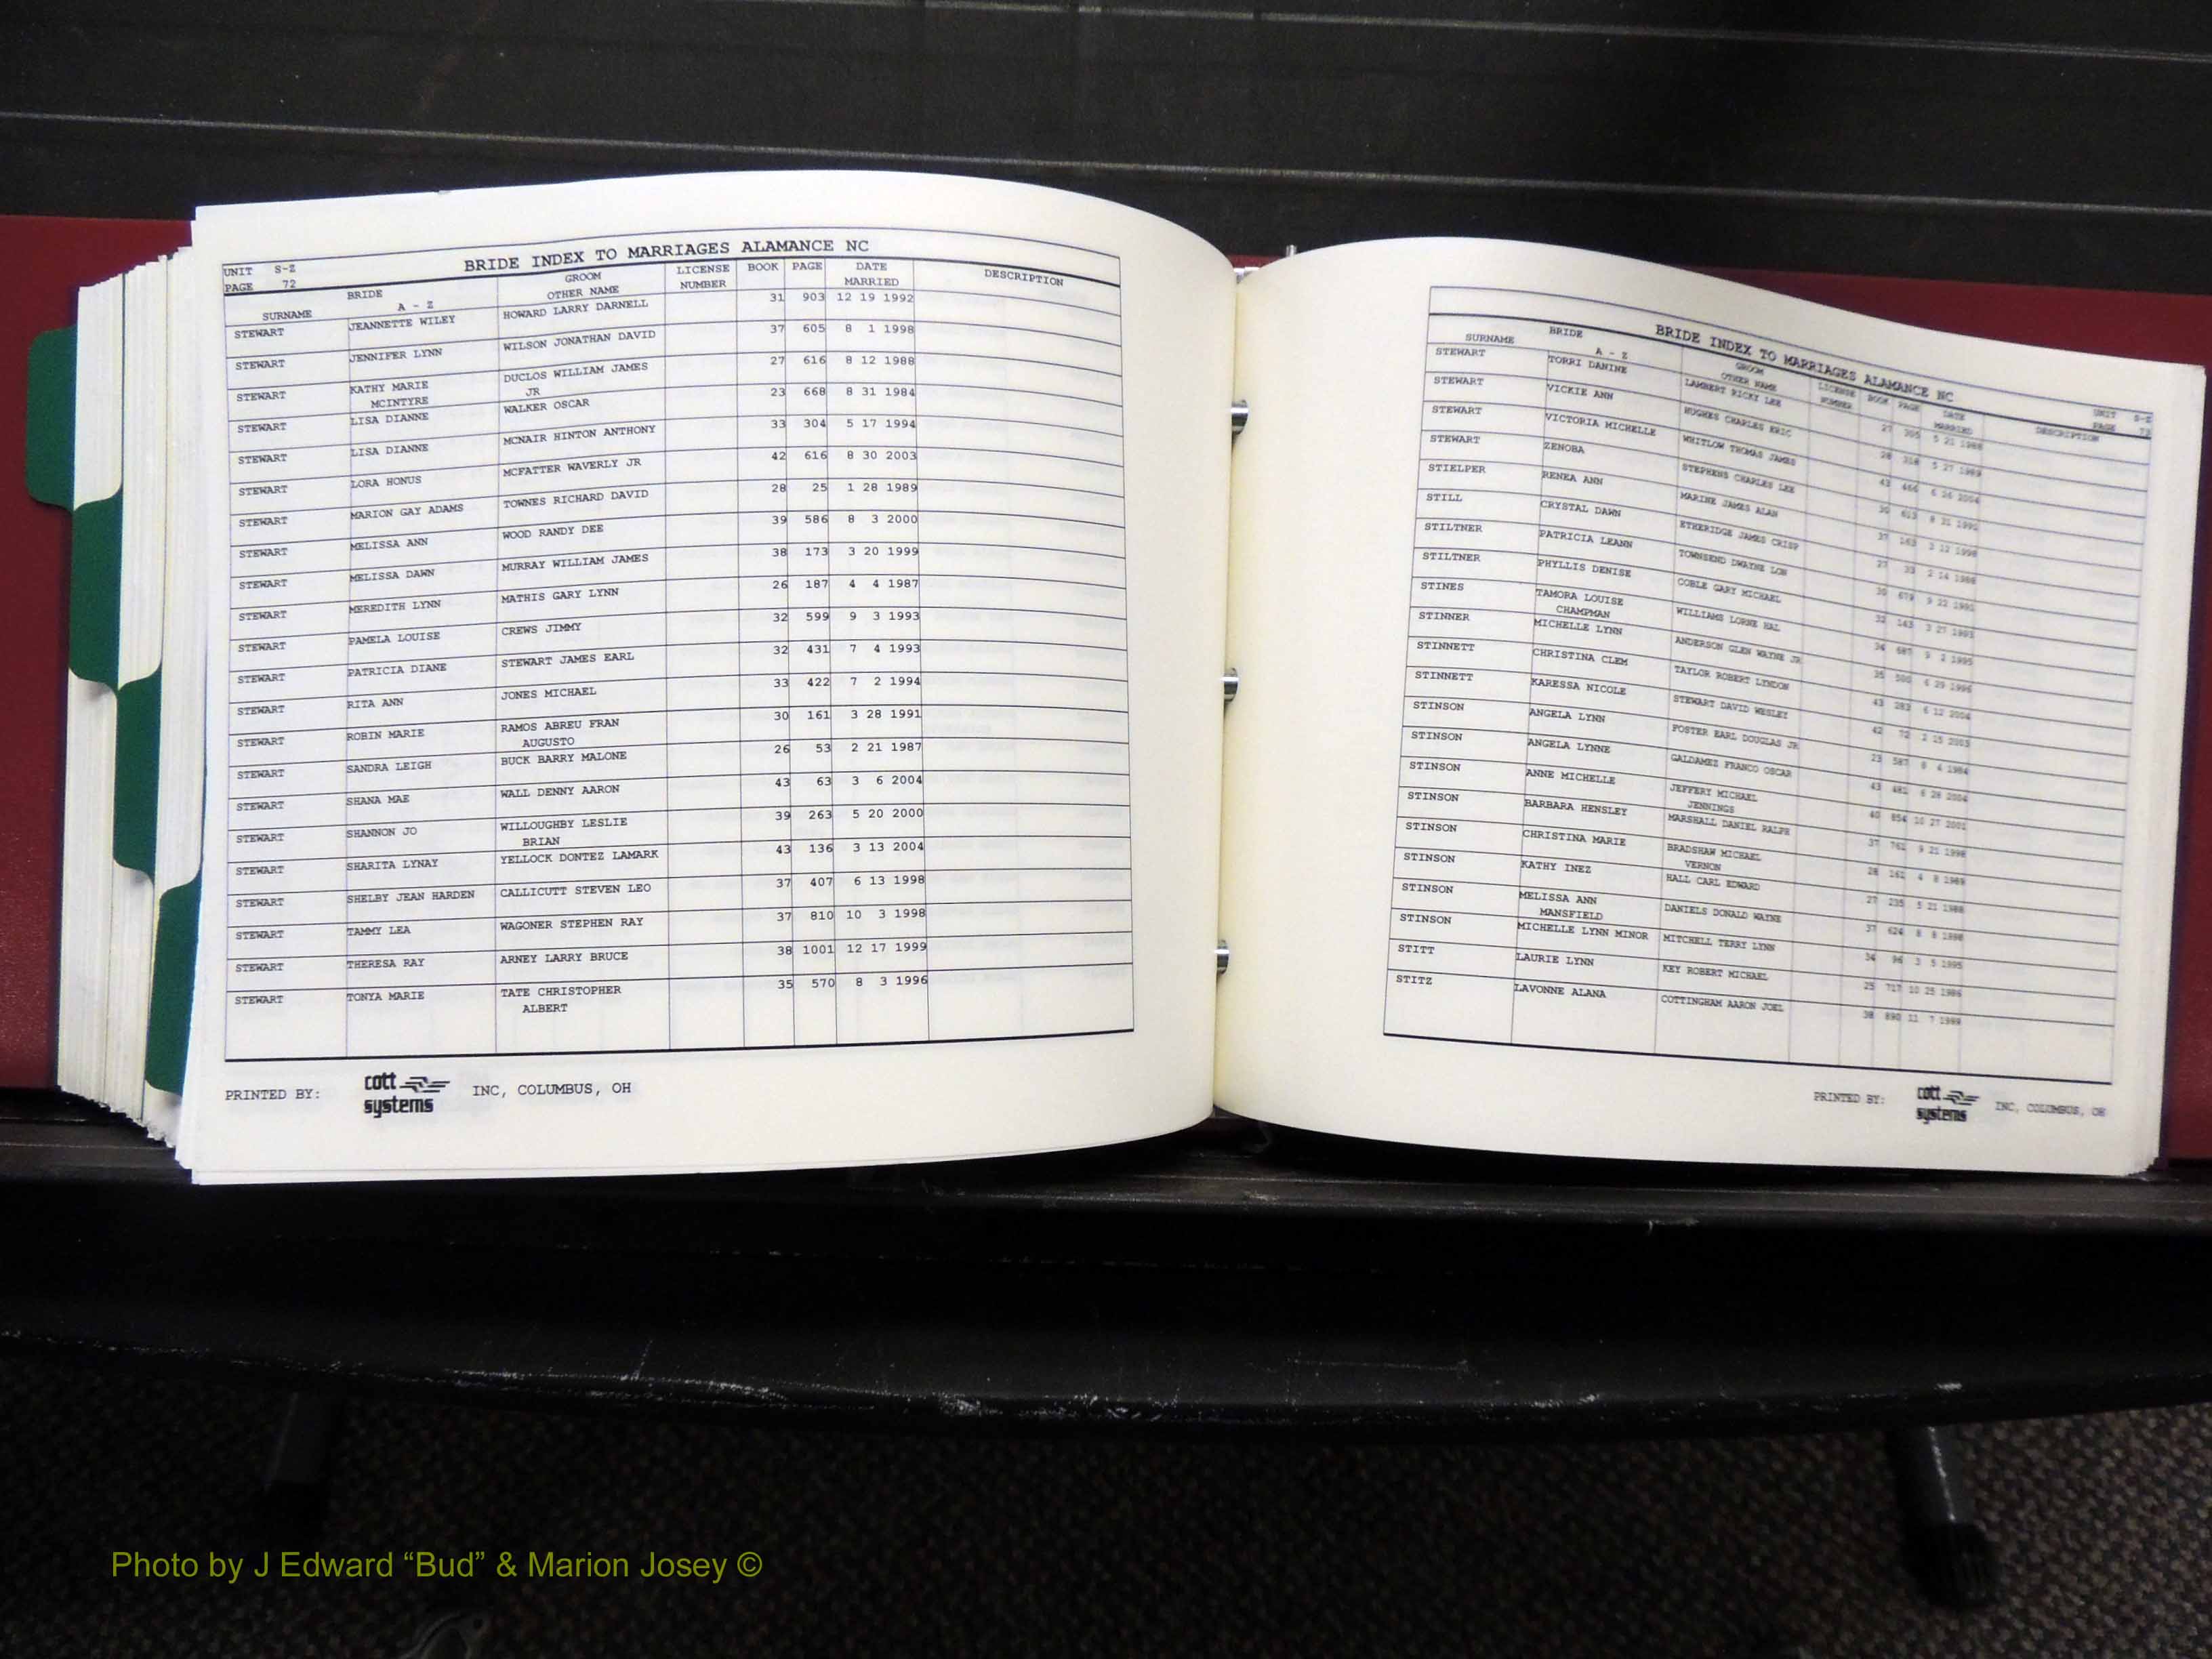 BRIDE INDEX TO MARRIAGES ALAMANCE NC
UNIT S-Z
PAGE 72
BRIDE GROOM LICENSE BOOK PAGE DATE DESCRIPTION
SURNAME A - Z OTHER NAME NUMBER MARRIED
STEWART JEANNETTE WILEY HOWARD LARRY DARNELL 31 903 12 19 1992
STEWART JENNIFER LYNN WILSON JONATHAN DAVID 37 605 8 1 1998
STEWART KATHY MARIE DUCLOS WILLIAM JAMES 27 616 8 12 1988
MCINTYRE JR
STEWART LISA DIANNE WALKER OSCAR 23 668 8 31 1984
STEWART LISA DIANNE MCNAIR HINTON ANTHONY 33 304 5 17 1994
STEWART LORA HONUS MCFATTER WAVERLY JR 42 616 8 30 2003
STEWART MARION GAY ADAMS TOWNES RICHARD DAVID 28 25 1 28 1989
STEWART MELISSA ANN WOOD RANDY DEE 39 586 8 3 2000
STEWART MELISSA DAWN MURRAY WILLIAM JAMES 38 173 3 20 1999
STEWART MEREDITH LYNN MATHIS GARY LYNN 26 187 4 4 1987
STEWART PAMELA LOUISE CREWS JIMMY 32 599 9 3 1993
STEWART PATRICIA DIANE STEWART JAMES EARL 32 431 7 4 1993
STEWART RITA ANN JONES MICHAEL 33 422 7 2 1994
STEWART ROBIN MARIE RAMOS ABREU FRAN 30 161 3 28 1991
AUGUSTO
STEWART SANDRA LEIGH BUCK BARRY MALONE 26 53 2 21 1987
STEWART SHANA MAE WALL DENNY AARON 43 63 3 6 2004
STEWART SHANNON JO WILLOUGHBY LESLIE 39 263 5 20 2000
BRIAN
STEWART SHARITA LYNAY YELLOCK DONTEZ LAMARK 43 136 3 13 2004
STEWART SHELBY JEAN HARDEN CALLICUTT STEVEN LEO 37 407 6 13 1998
STEWART TAMMY LEA WAGONER STEPHEN RAY 37 810 10 3 1998
STEWART THERESA RAY ARNEY LARRY BRUCE 38 1001 12 17 1999
STEWART TONYA MARIE TATE CHRISTOPHER 35 570 8 3 1996
ALBERT
PRINTED BY: cott systems INC, COLUMBUS, OH
BRIDE INDEX TO MARRIAGES ALAMANCE NC
UNIT S-Z
PAGE
BRIDE GROOM LICENSE BOOK PAGE DATE DESCRIPTION
SURNAME A - Z OTHER NAME NUMBER MARRIED
STEWART TORRI DANINE LAMBERT RICKY LEE 27 5 21 1988
STEWART VICKIE ANN HUGHES CHARLES ERIC 28 5 27 1989
STEWART VICTORIA MICHELLE WHITLOW THOMAS JAMES 43 466 6 26 2004
STEWART ZENOBA STEPHENS CHARLES LEE 30 613
STIELPER RENEA ANN MARINE JAMES ALAN 37 163 3 12 1998
STILL CRYSTAL DAWN ETHERIDGE JAMES CRISP 27 2 14 1988
STILTNER PATRICIA LEANN TOWNSEND DWAYNE LON 30
STILTNER PHYLLIS DENISE COBLE GARY MICHAEL 32 143 3 27 1993
STINES TAMORA LOUISE WILLIAMS LORNE HAL 34 687 9 2 1995
CHAMPMAN
STINNER MICHELLE LYNN ANDERSON GLEN WAYNE JR 35 500 6 29 1996
STINNETT CHRISTINA CLEM TAYLOR ROBERT LYNDON 43 283 6 12 2004
STINNETT KARESSA NICOLE STEWART DAVID WESLEY 42 72 2 15 2003
STINSON ANGELA LYNN FOSTER EARL DOUGLAS JR 23 587 8 4 1984
STINSON ANGELA LYNNE GALDAMEZ FRANCO OSCAR 43 482 6 26 2004
STINSON ANNE MICHELLE JEFFERY MICHAEL 40 854 10 27 2001
JENNINGS
STINSON BARBARA HENSLEY MARSHALL DANIEL RALPH 37 762 9 21 1998
STINSON CHRISTINA MARIE BRADSHAW MICHAEL 28 161 4 8 1989
VERNON
STINSON KATHY INEZ HALL CARL EDWARD 27 235 5 21 1988
STINSON MELISSA ANN DANIELS DONALD WAYNE 37 624 8 8 1998
MANSFIELD
STINSON MICHELLE LYNN MINOR MITCHELL TERRY LYNN 34 96 3 5 1995
STITT LAURIE LYNN KEY ROBERT MICHAEL 25 717 10 25 1986
STITZ LAVONNE ALANA COTTINGHAM AARON JOEL 38 890 11 7 1999
PRINTED BY: cott systems INC, COLUMBUS, OH
Photo by J Edward “Bud” & Marion Josey ©